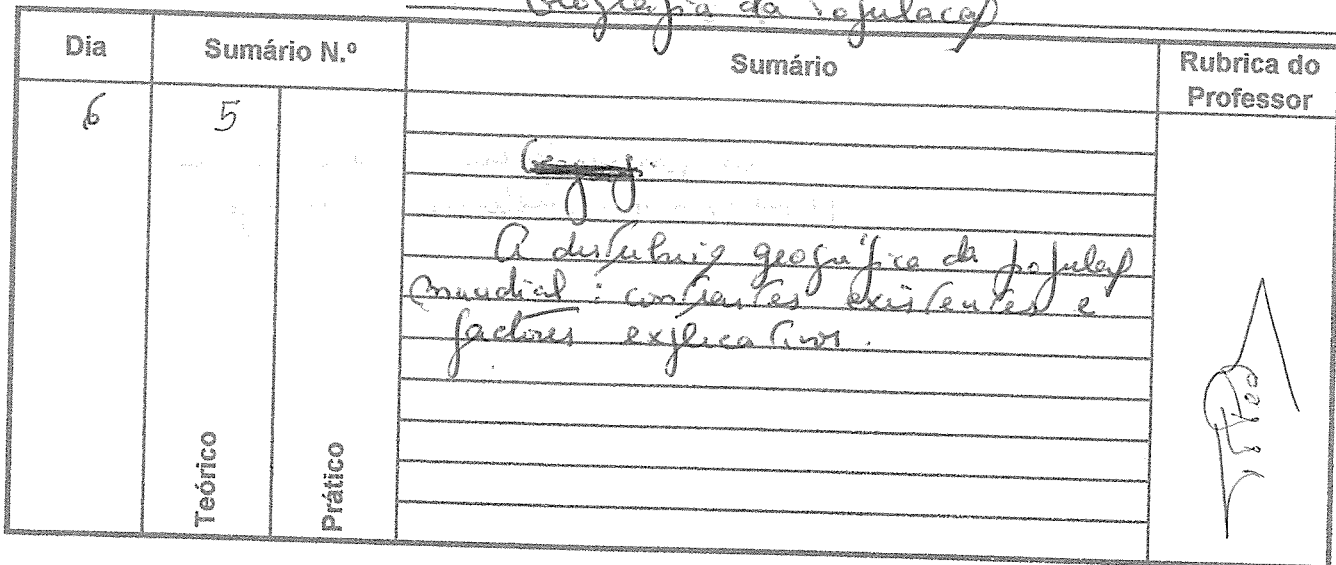 Geografia da Populaçaõ
Dia
Sumário N.º
Sumário
Rubrica do
Professor
6
5
A distribuiç geográfica da populaç
mundial: contrastes existentes e
factores explicativos.
Teórico
Prático